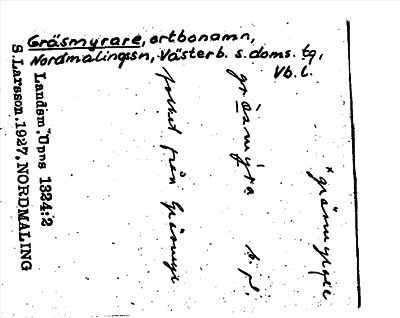 Gräsmyrare, ortbonamn,
Nordmalingssn, Västerb. s. doms. tg,
Vb. l.
*gräsmyrare
gräsmýra b. pl.
folket från Gräsmyr
Landsm. Upps 1334:2
S. Larsson. 1927. NORDMALING